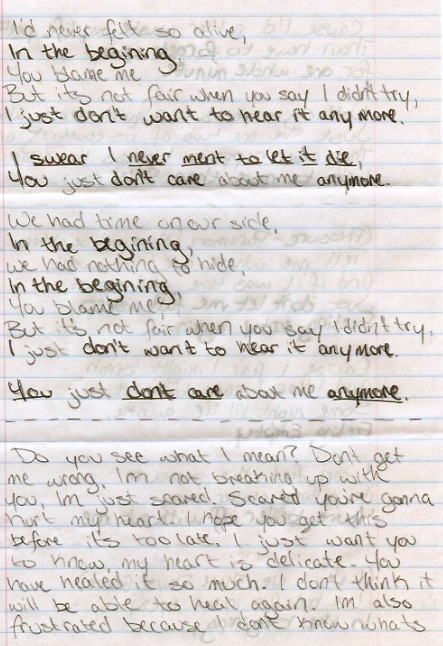 I'd never felt so alive,
In the begining,
You blame me
But it's not fair when you say I didn't try,
I just don't want to hear it any more.
I swear I never ment to let it die,
You just don't care about me anymore.
We had time on our side,
In the begining,
we had nothing to hide,
In the begining,
You blame me,
But it's not fair when you say I didn't try,
I just don't want to hear it any more.
You just dont care about me anymore.
Do you see what I mean? Dont get
me wrong, Im not breaking up with
you, Im just scared. Scared you're gonna
hurt my heart. I hope you get this
before it's too late. I just want you
to know, my heart is delicate. You
have healed it so much. I don't think it
will be able to heal again. Im also
frustrated because I dont know whats